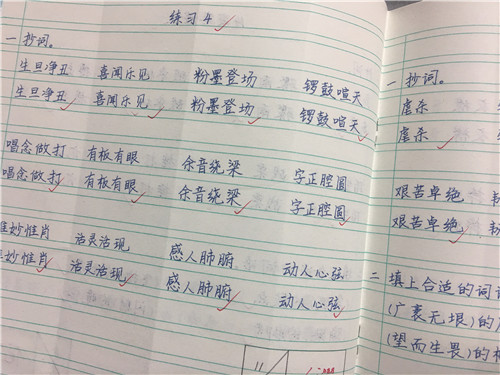 练习4
一 抄词。
生旦净丑 喜闻乐见 粉墨登场 锣鼓喧天
生旦净丑 喜闻乐见 粉墨登场 锣鼓喧天
唱念做打 有板有眼 余音绕梁 字正腔圆
唱念做打 有板有眼 余音绕梁 字正腔圆
惟妙惟肖 活灵活现 感人肺腑 动人心弦
惟妙惟肖 活灵活现 感人肺腑 动人心弦
一 抄词。
虐杀
虐杀
艰苦卓绝
艰苦卓绝
二 填上合适的词
(广袤无垠)的
(望而生畏)的